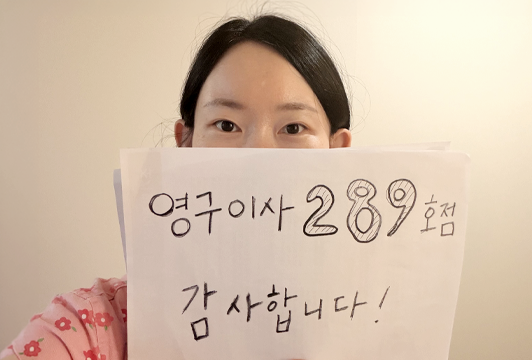 영구이사 289 호점
감사합니다!